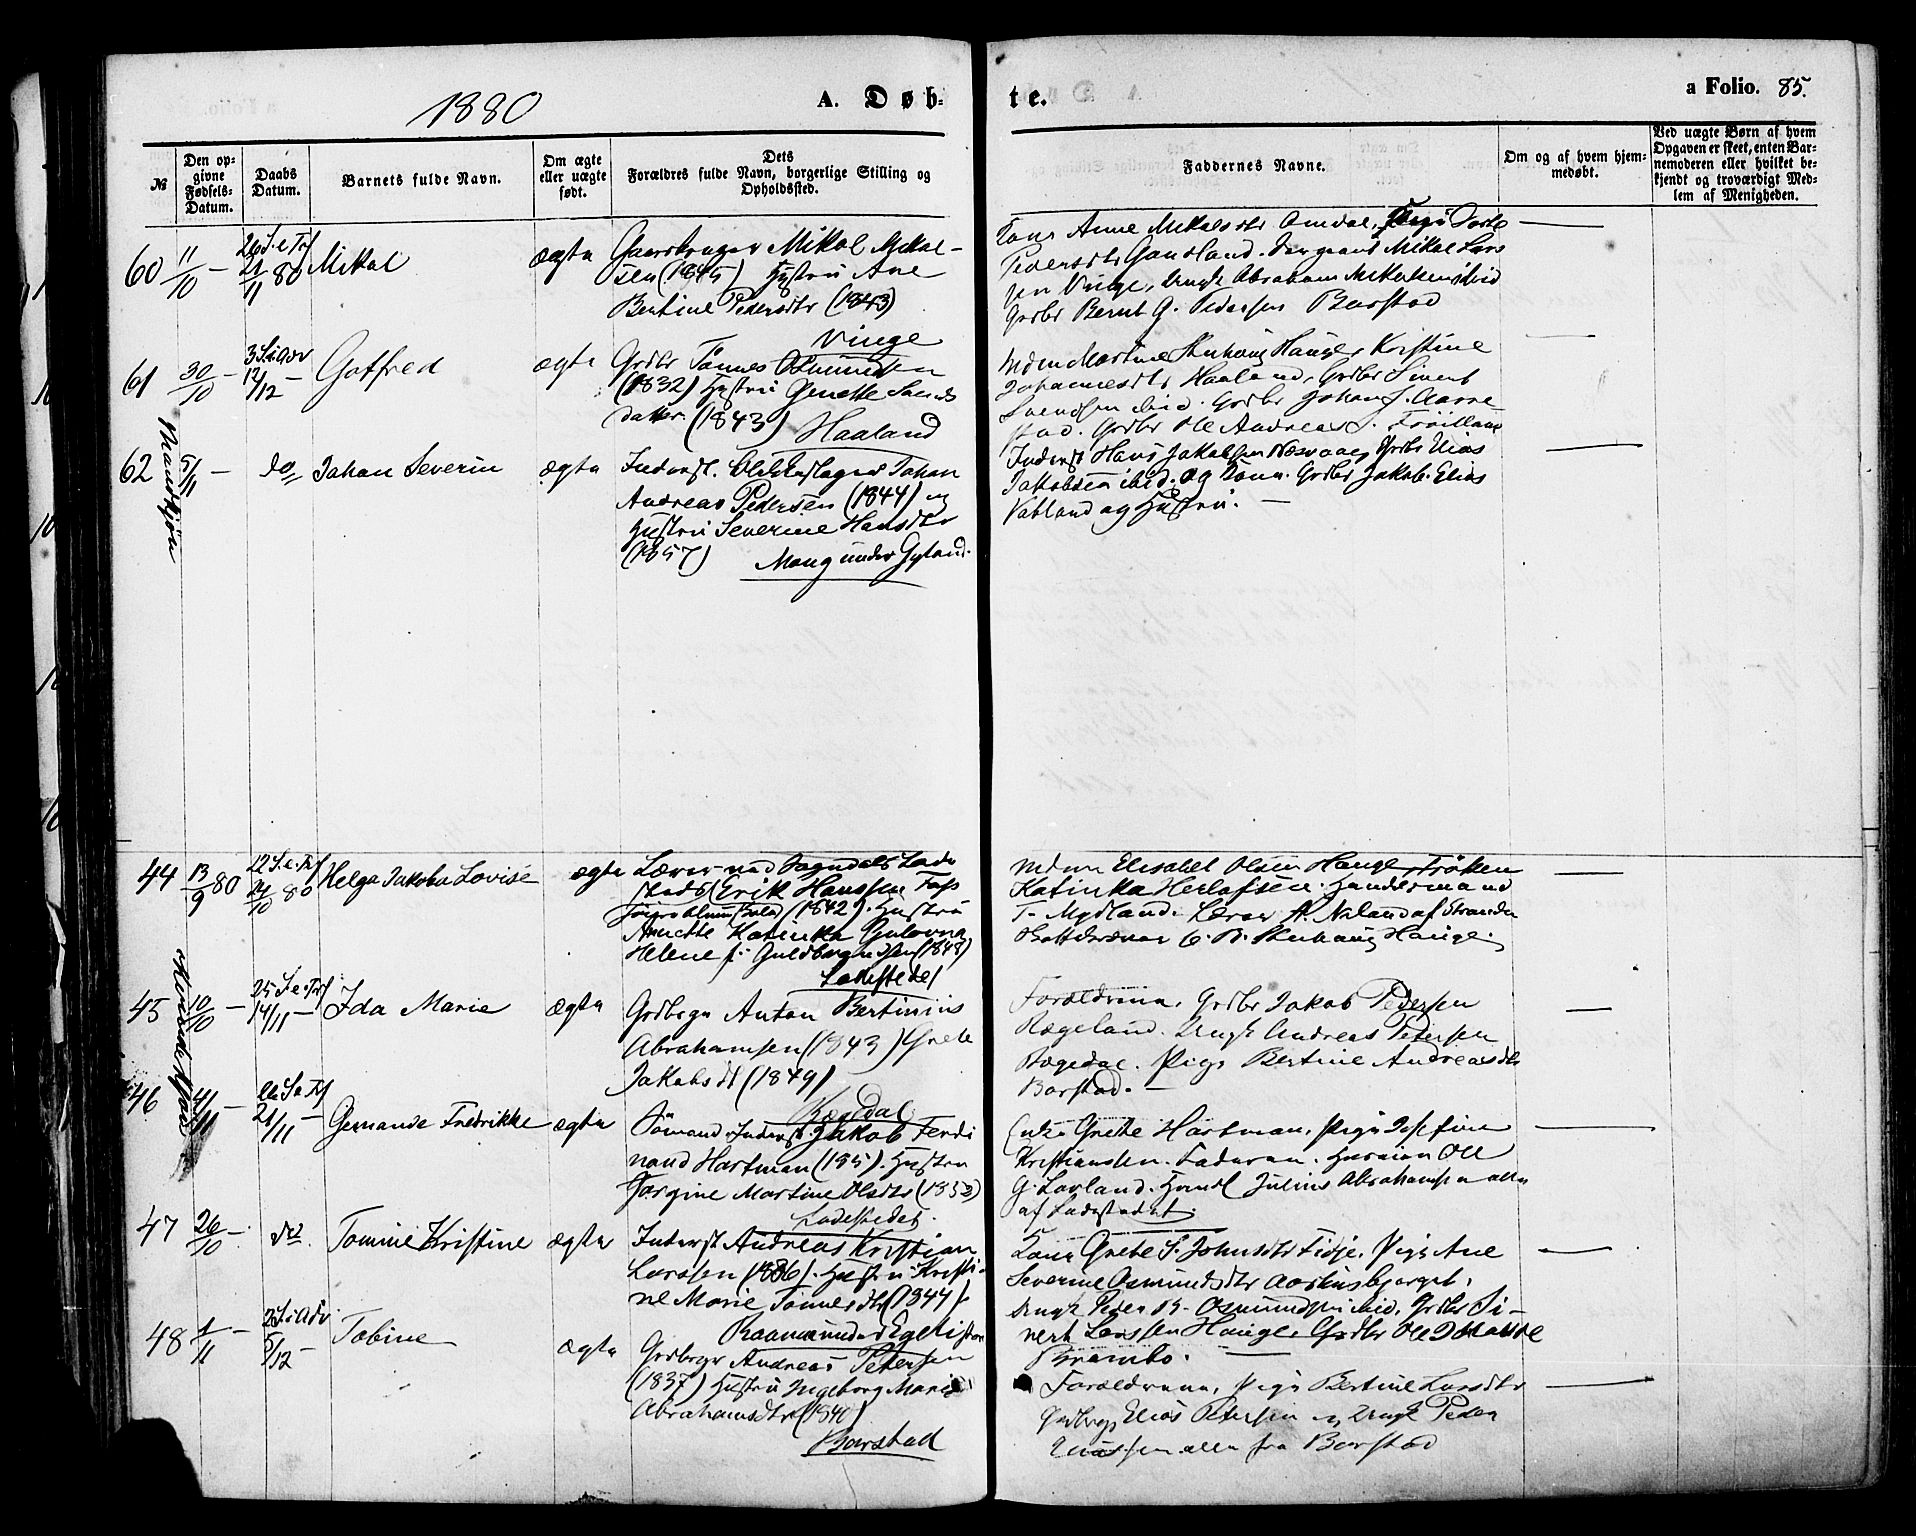 1880
A. Døb-
te.
a Folio. 85.
№
Den op-
givne
Fødsels-
Datum.
Daabs
Datum.
Barnets fulde Navn.
Om ægte
eller uægte
født.
Dets
Forældres fulde Navn, borgerlige Stilling og
Opholdssted.
Faddernes Navne.
Om og af hvem hjem-
medøbt.
Ved uægte Børn af hvem
Opgaven er skeet, enten Bar-
nemoderen eller hvilket be-
kjendt og troværdigt Med-
lem af Menigheden.
60 11/10 - 26 S. e. Trf 21/11 80 Mikal ægte
Gaardbruger Mikal Mikal-
sen (1845) Hustru Ane
Bertine Pedersdtr (1843)
Vinge
Kone Anne Mikalsdtr Omdal, Pige
Pedersdtr Gausland. Sergeant Mikal Lars
sen Vinge, Ungk Abraham Mikalsen ibid
Grdbr Bernt G. Pedersen Barstad
61 30/10 - 3 S. i Adv 12/12 - Gotfred ægte
Grdbr Tønnes Osmundsen
(1832) Hustru Genette Svends
datter (1843)
Haaland
Martine Hauge, Kristine
Johannesdtr Haaland, Grdbr Sivert
Svendsen ibid. Grdbr Johan J. Aarre-
stad. Grdbr Ole Andreas
62 5/11 - do Johan Severin ægte
Inderst. Johan
Andreas Pedersen (1844) og
Hustru Severine Hansdtr
(1857) Mong under Gyland.
Inderst Hans Jakobsen Grdbr Elias
Jakobsen ibid. og Kone. Grdbr Jakob Elias
Vatland og Hustru. -
Mandkjøn
44 13/9 80 22 S. e. Trf 24/10 80 Helga Jakoba Lovise ægte
Lærer ved Sogndals Lade
steds Erik Hanssen
(1842). Hustru
Anette Katinka
Helene f. Guldbrandsen (1848)
Ladestedet
Elisabet Olsen Hauge, Frøken
Katinka Herlofsen. Handelsmand
T. Mydland. Lærer A. Naland af Stranden
Hauge.
Kvindekjøn
45 10/10 - 25 S. e. Trf 14/11 - Ida Marie ægte
Grdbrgr Anton Bertinius
Abrahamsen (1843) Grete
Jakobsdt (1849)
Rægedal
Forældrene, Grdbr Jakob Pedersen
Rægeland. Ungk Andreas Petersen
Rægedal. Pige Bertine Andreasdtr
Barstad. -
46 4/11 - 26 S. e. Trf 21/11 - Gemande Fredrikke ægte
Sømand Inderst Jakob Ferdi
nand Hartman (185 ). Hustru
Torgine Martine Olsdtr (1853)
Ladestedet.
Enke Grethe Hartman, Pige Josefine
Kristiansen. Faderen. Ole
G. Lavland. Handl Julius Abrahamsen alle
af Ladestedet.
47 26/10 - do. Tomine Kristine ægte
Inderst Andreas Kristian
Larssen (1836). Hustru Kristi-
ne Marie Tønnesdtr (1844).
Kone Grete S. Johnsdtr Fidje. Pige Ane
Severine Osmundsdtr
Ungk Peder B. Osmundsen ibid. Grdbr Si-
vert Larssen Hauge. Grdbr Ole
Brambo.
48 1/11 - 2 S. i Adv. 5/12 - Tobine ægte
Grdbrgr Andreas Petersen
(1837) Hustru Ingeborg Marie
Abrahamsdtr (1840)
Barstad
Forældrene, Pige Bertine Larsdtr
Grdbrg. Elias Petersen og Ungk Peder
alle fra Barstad